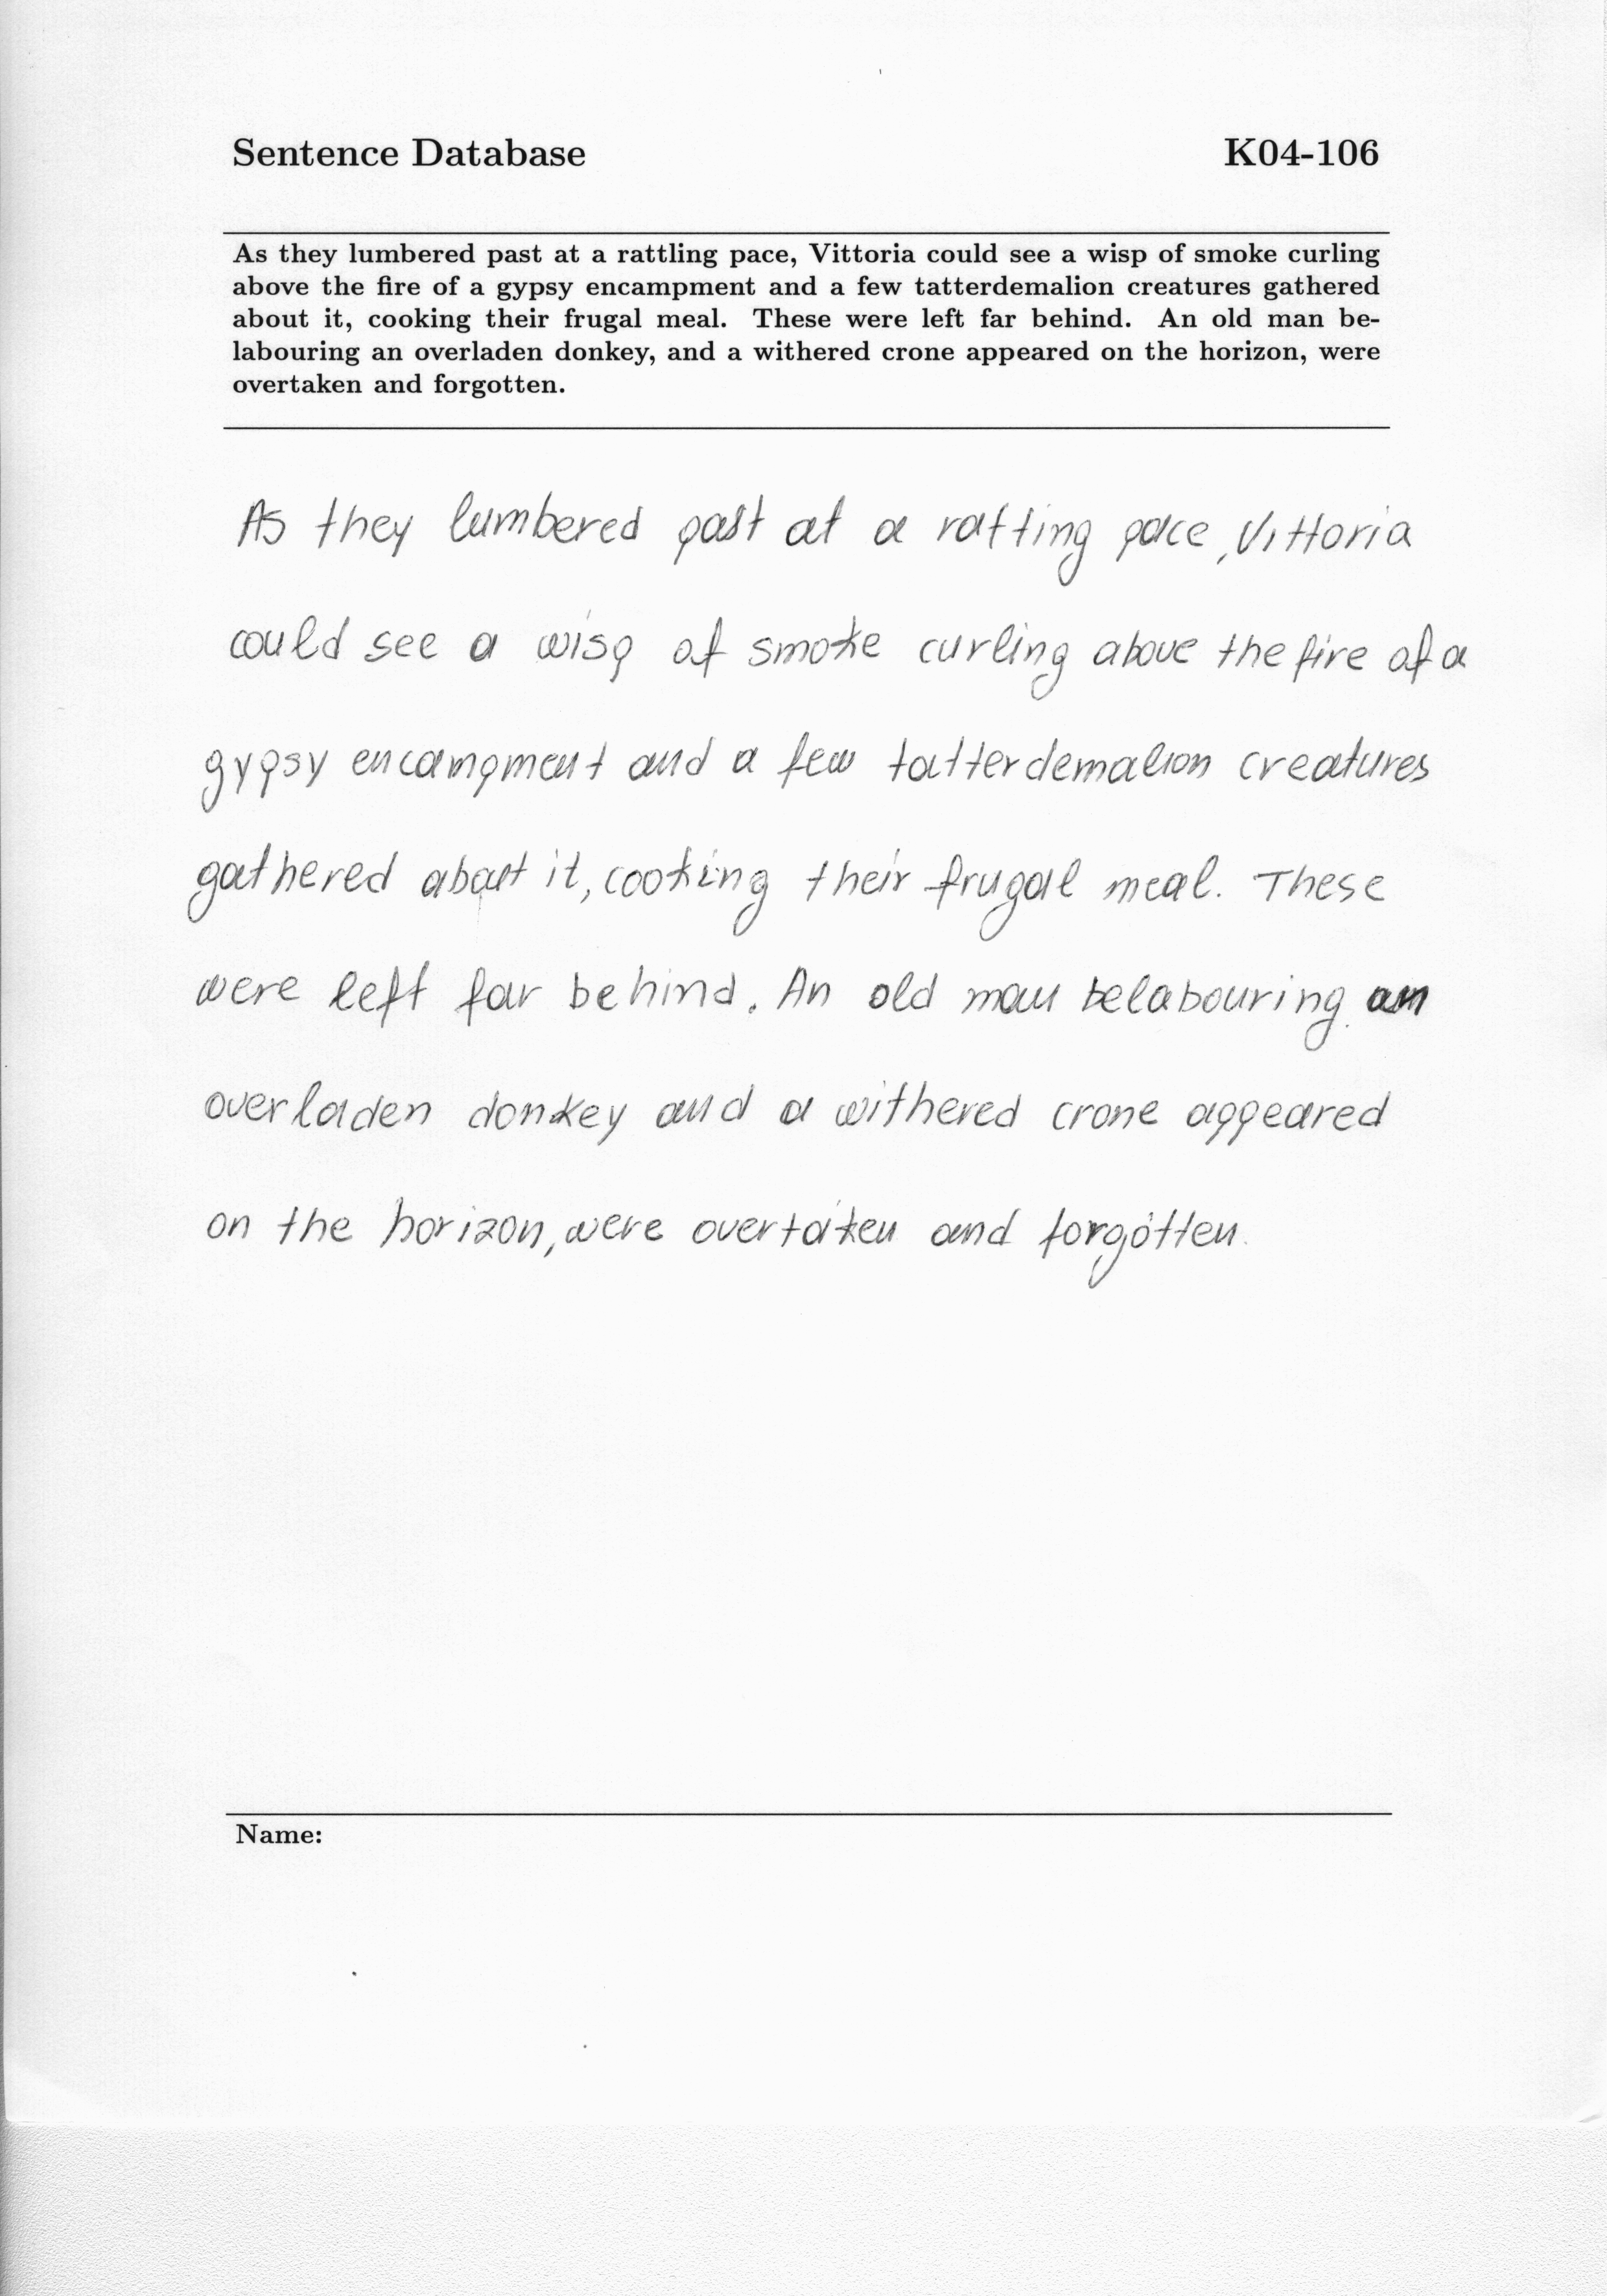 Sentence Database K04-106
As they lumbered past at a rattling pace, Vittoria could see a wisp of smoke curling
above the fire of a gypsy encampment and a few tatterdemalion creatures gathered
about it, cooking their frugal meal. These were left far behind. An old man be-
labouring an overladen donkey, and a withered crone appeared on the horizon, were
overtaken and forgotten.
As they lumbered past at a ratting pace, Vittoria
could see a wisp of smoke curling above the fire of a
gypsy encampment and a few tatterdemalion creatures
gathered about it, cooking their frugal meal. These
were left far behind. An old man belabouring an
overladen donkey and a withered crone appeared
on the horizon, were overtaken and forgotten.
Name: